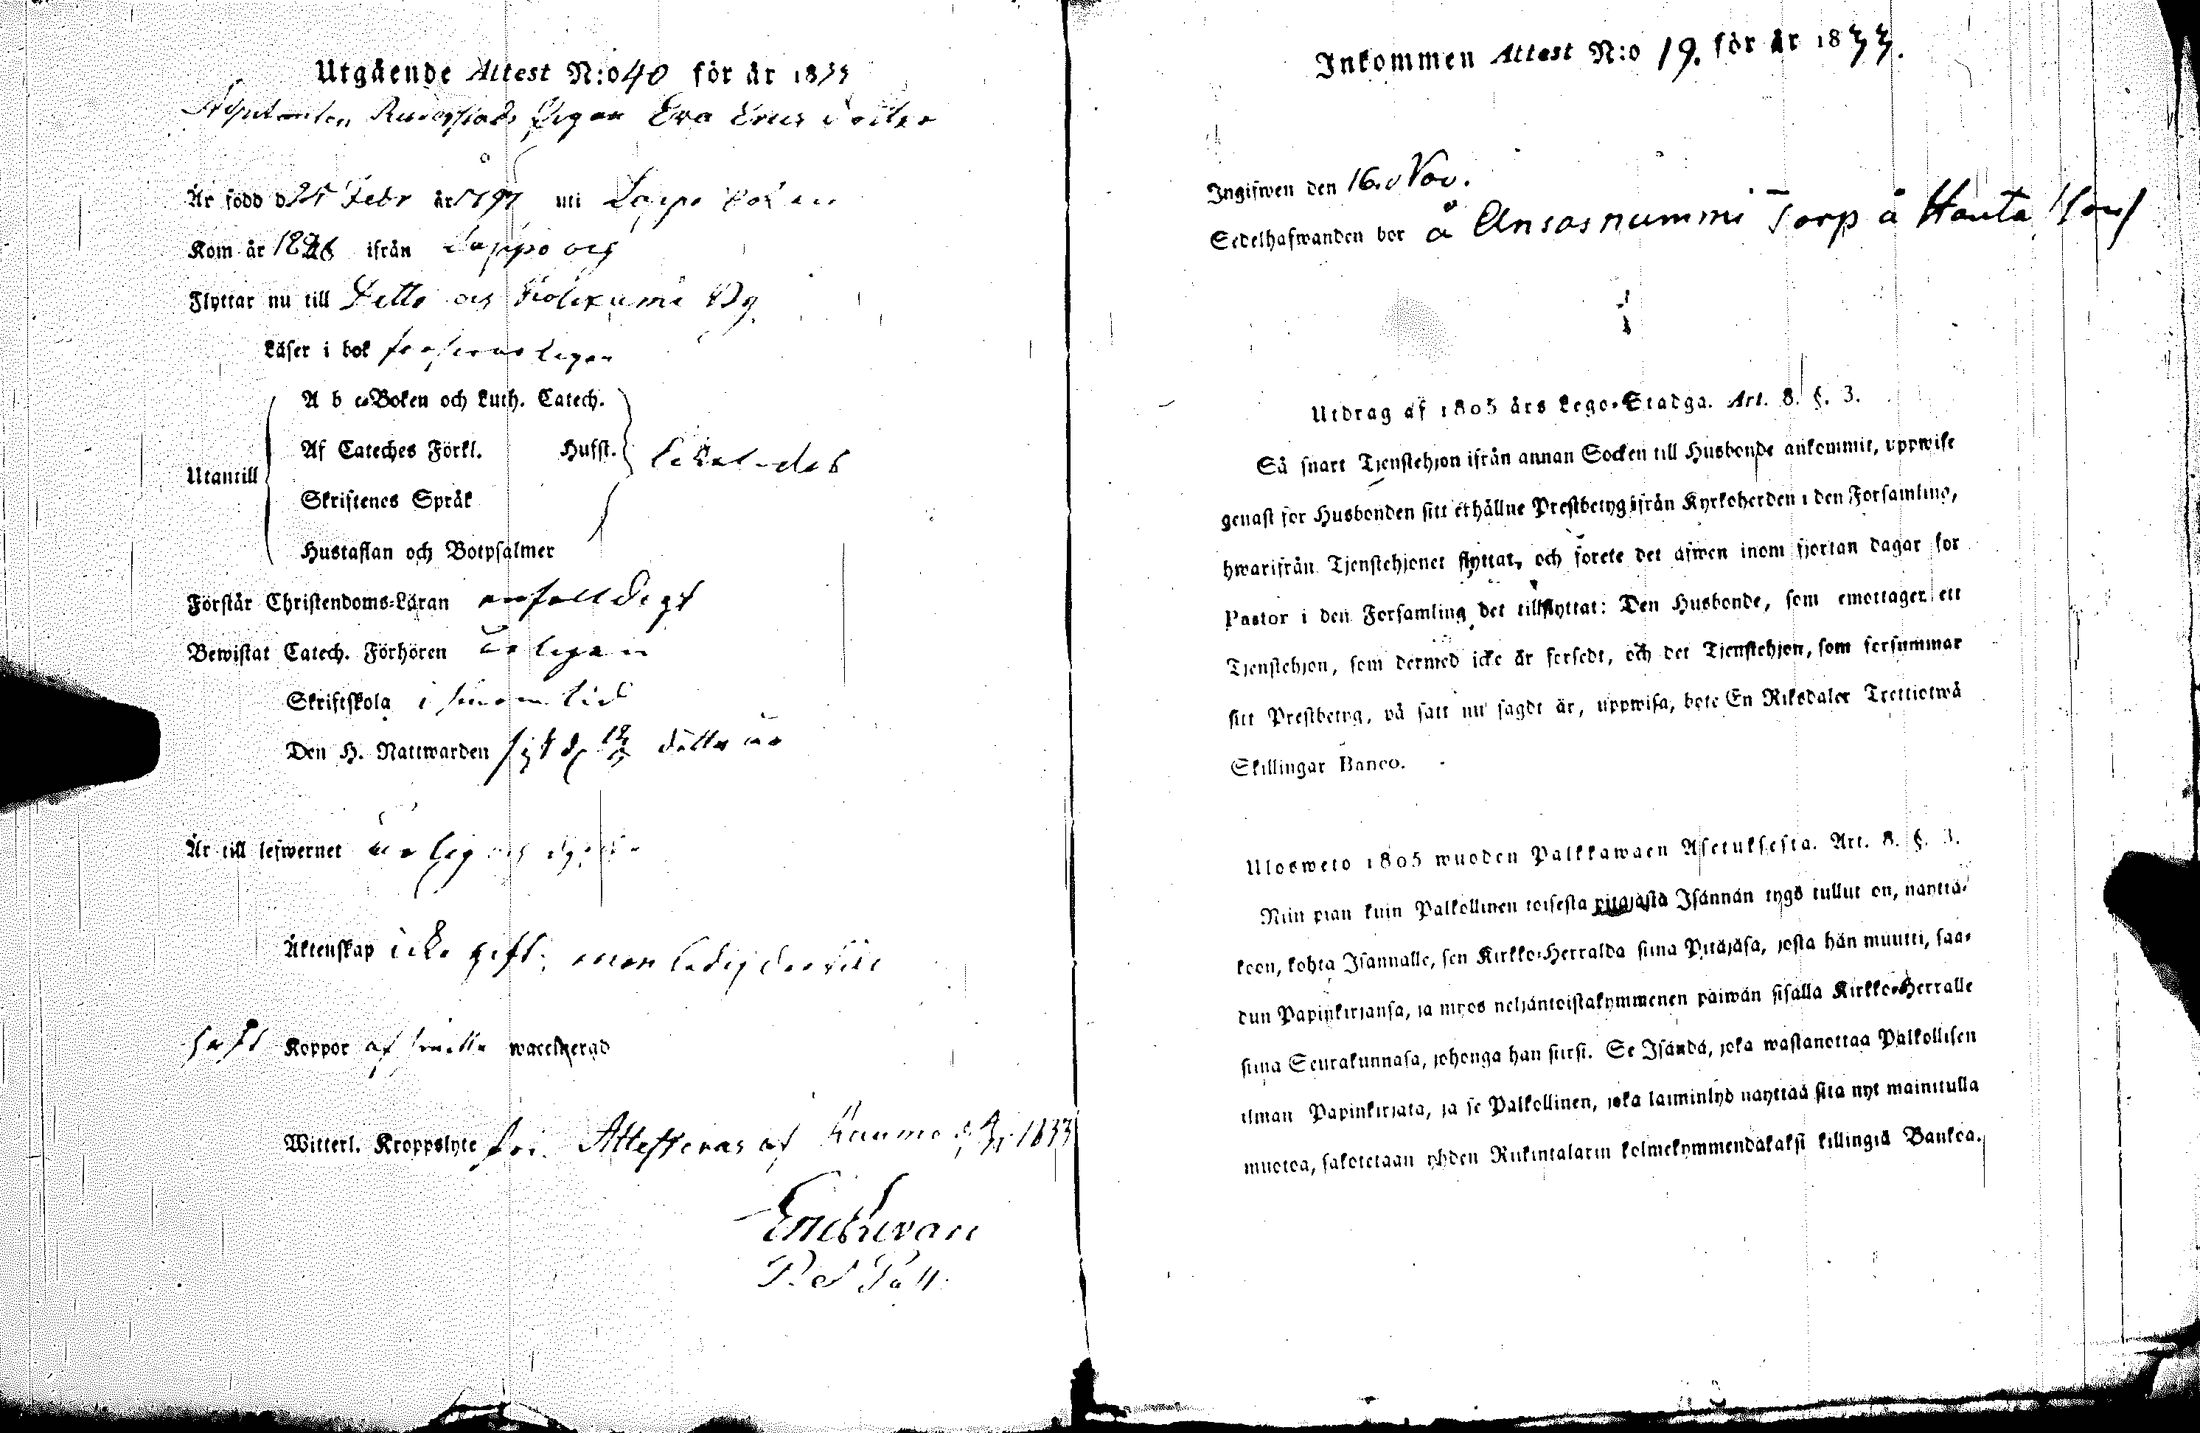 Utgående Attest N:o 40 för år 1833
Eva Ericsdotter
Är född d 25 Febr år 1797 uti Lappo Socken
Kom år 1826 ifrån Lappo och
Flyttar nu till Detto och By
Läser i bok försvarligen
A b c-Boken och Luth. Catech.
Af Cateches Förkl. Husst.
Utantill likaledes
Skriftenes Språk
Hustaflan och Botpsalmer
Förstår Christendoms-Läran enfaldigt
Bewistat Catech. Förhören årligen
Skriftskola i sinom tid
Den H. Nattwarden detta år
Är till lefwernet ärlig och
Äktenskap icke gift, men ledig dertill
haft Koppor af waccinerad
Witterl. Kroppslyte fri. Attesteras af Raumo 1833
Past
Inkommen Attest N:o 19. för år 1833.
Ingifwen den 16. Nov.
Sedelhafwanden bor å Ansasnummi Torp å Hauta
Utdrag af 1805 års Lego-Stadga. Art. 8. §. 3.
Så snart Tjenstehjon ifrån annan Socken till Husbonde ankommit, uppwise
genast för Husbonden sitt erhållne Prestbetyg ifrån Kyrkoherden i den Församling,
hwarifrån Tjenstehjonet flyttat, och förete det äfwen inom fjortan dagar för
Pastor i den Församling det tillflyttat: Den Husbonde, som emottager ett
Tjenstehjon, som dermed icke är försedt, och det Tjenstehjon, som försummar
sitt Prestbetyg, på sätt nu sagdt är, uppwisa, böte En Riksdaler Trettiotwå
Skillingar Banco.
Ulosweto 1805 wuoden Palkkawäen Asetuksesta. Art. 8. §. 3.
Niin pian kuin Palkollinen toisesta pitäjästä Isännän tygö tullut on, näyttä-
köön, kohta Isännälle, sen Kirkko-Herralda siinä Pitäjäsä, josta hän muutti, saa-
dun Papinkirjansa, ja myös neljäntoistakymmenen päiwän sisällä Kirkko-Herralle
siinä Seurakunnasa, johonga hän siirsi. Se Isändä, joka wastanottaa Palkollisen
ilman Papinkirjata, ja se Palkollinen, joka laiminlyö näyttää sitä nyt mainitulla
muotoa, sakotetaan yhden Riikintalarin kolmekymmendäkaksi killingiä Bankoa.